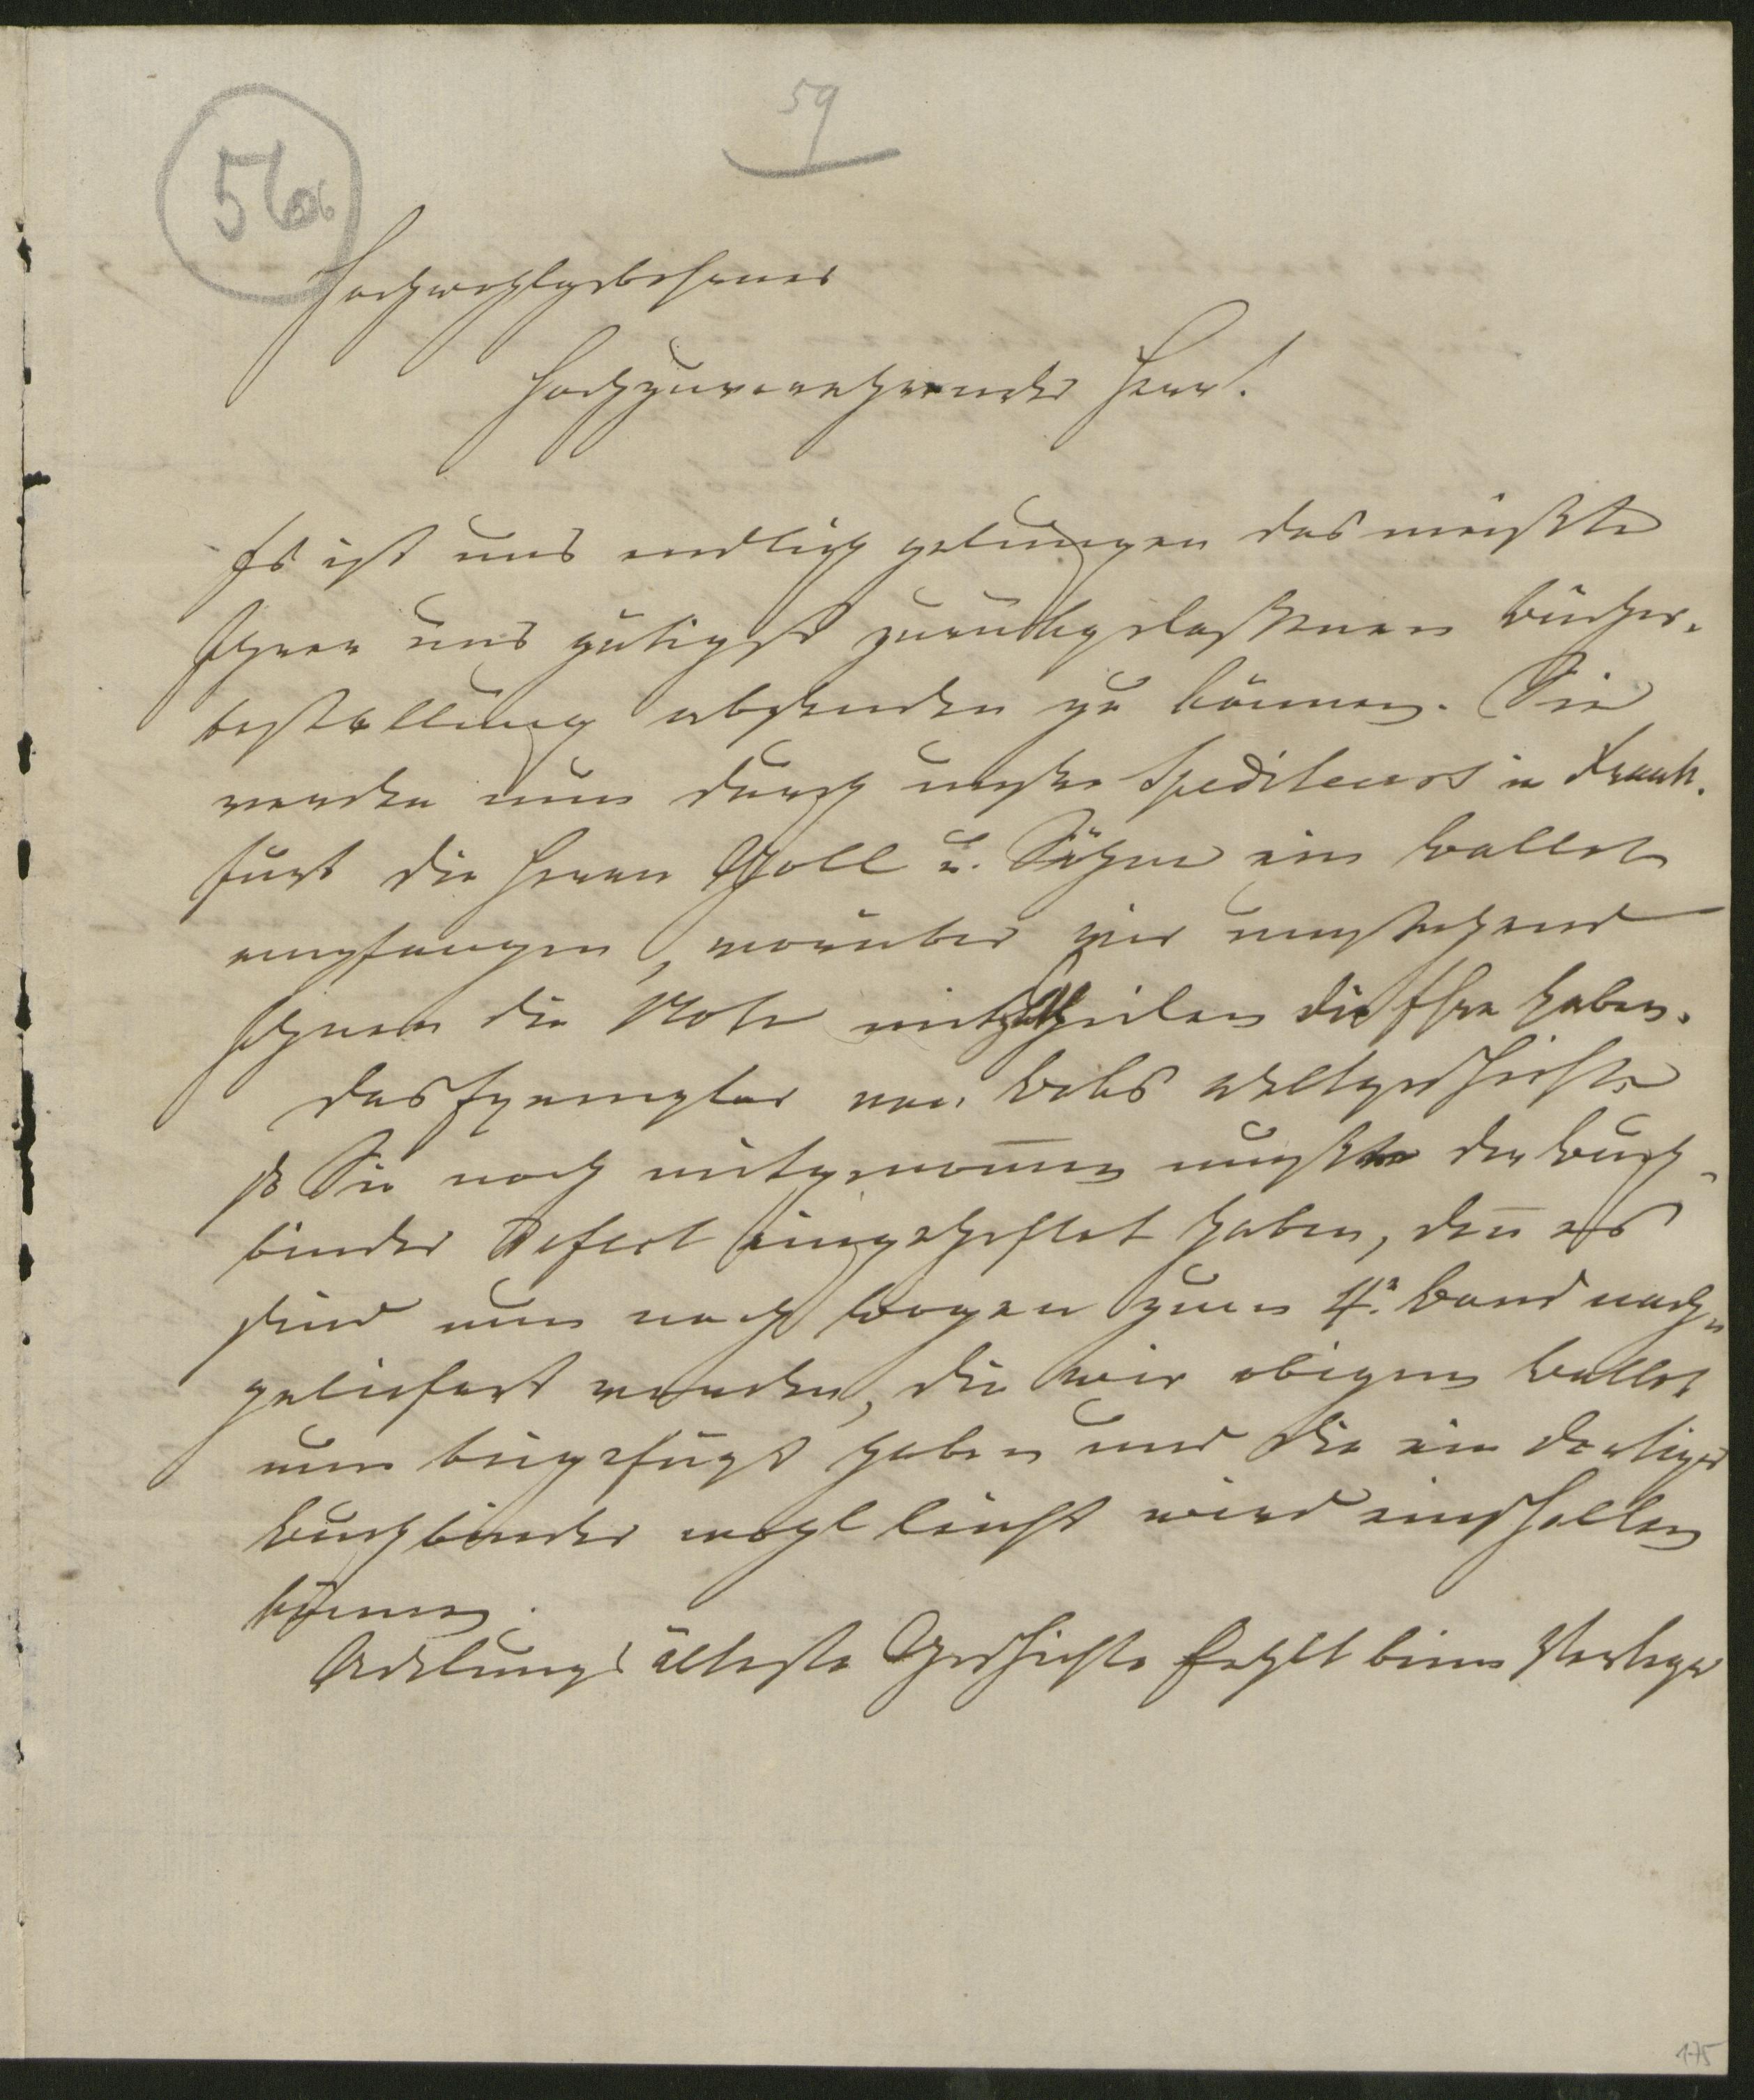 59
56a
Hochwohlgebohrner
Hochzuverehrender Herr!
Es ist uns endlich gelungen das meiste
Ihrer uns gütigst zurückgelassenen Bücher-
bestellung absenden zu können. Sie
werden nun durch unsre Spediteurs in Frank-
furt die Herren Goll u. Söhne ein Ballot
empfangen, worüber wir umstehend
Ihnen die Note mitzutheilen die Ehre haben.
Das Exemplar von Beks Weltgeschichte
so Sie noch mitgenomen muste der Buch-
binder Defect eingeheftet haben, den es
sind nun noch Bogen zum 4n Band nach-
geliefert worden, die wir obigem Ballot
nun beigefügt haben und die ein dortiger
Buchbinder wohl leicht wird einschalten
können.
Adelungs älteste Geschichte fehlt beim Verleger
175